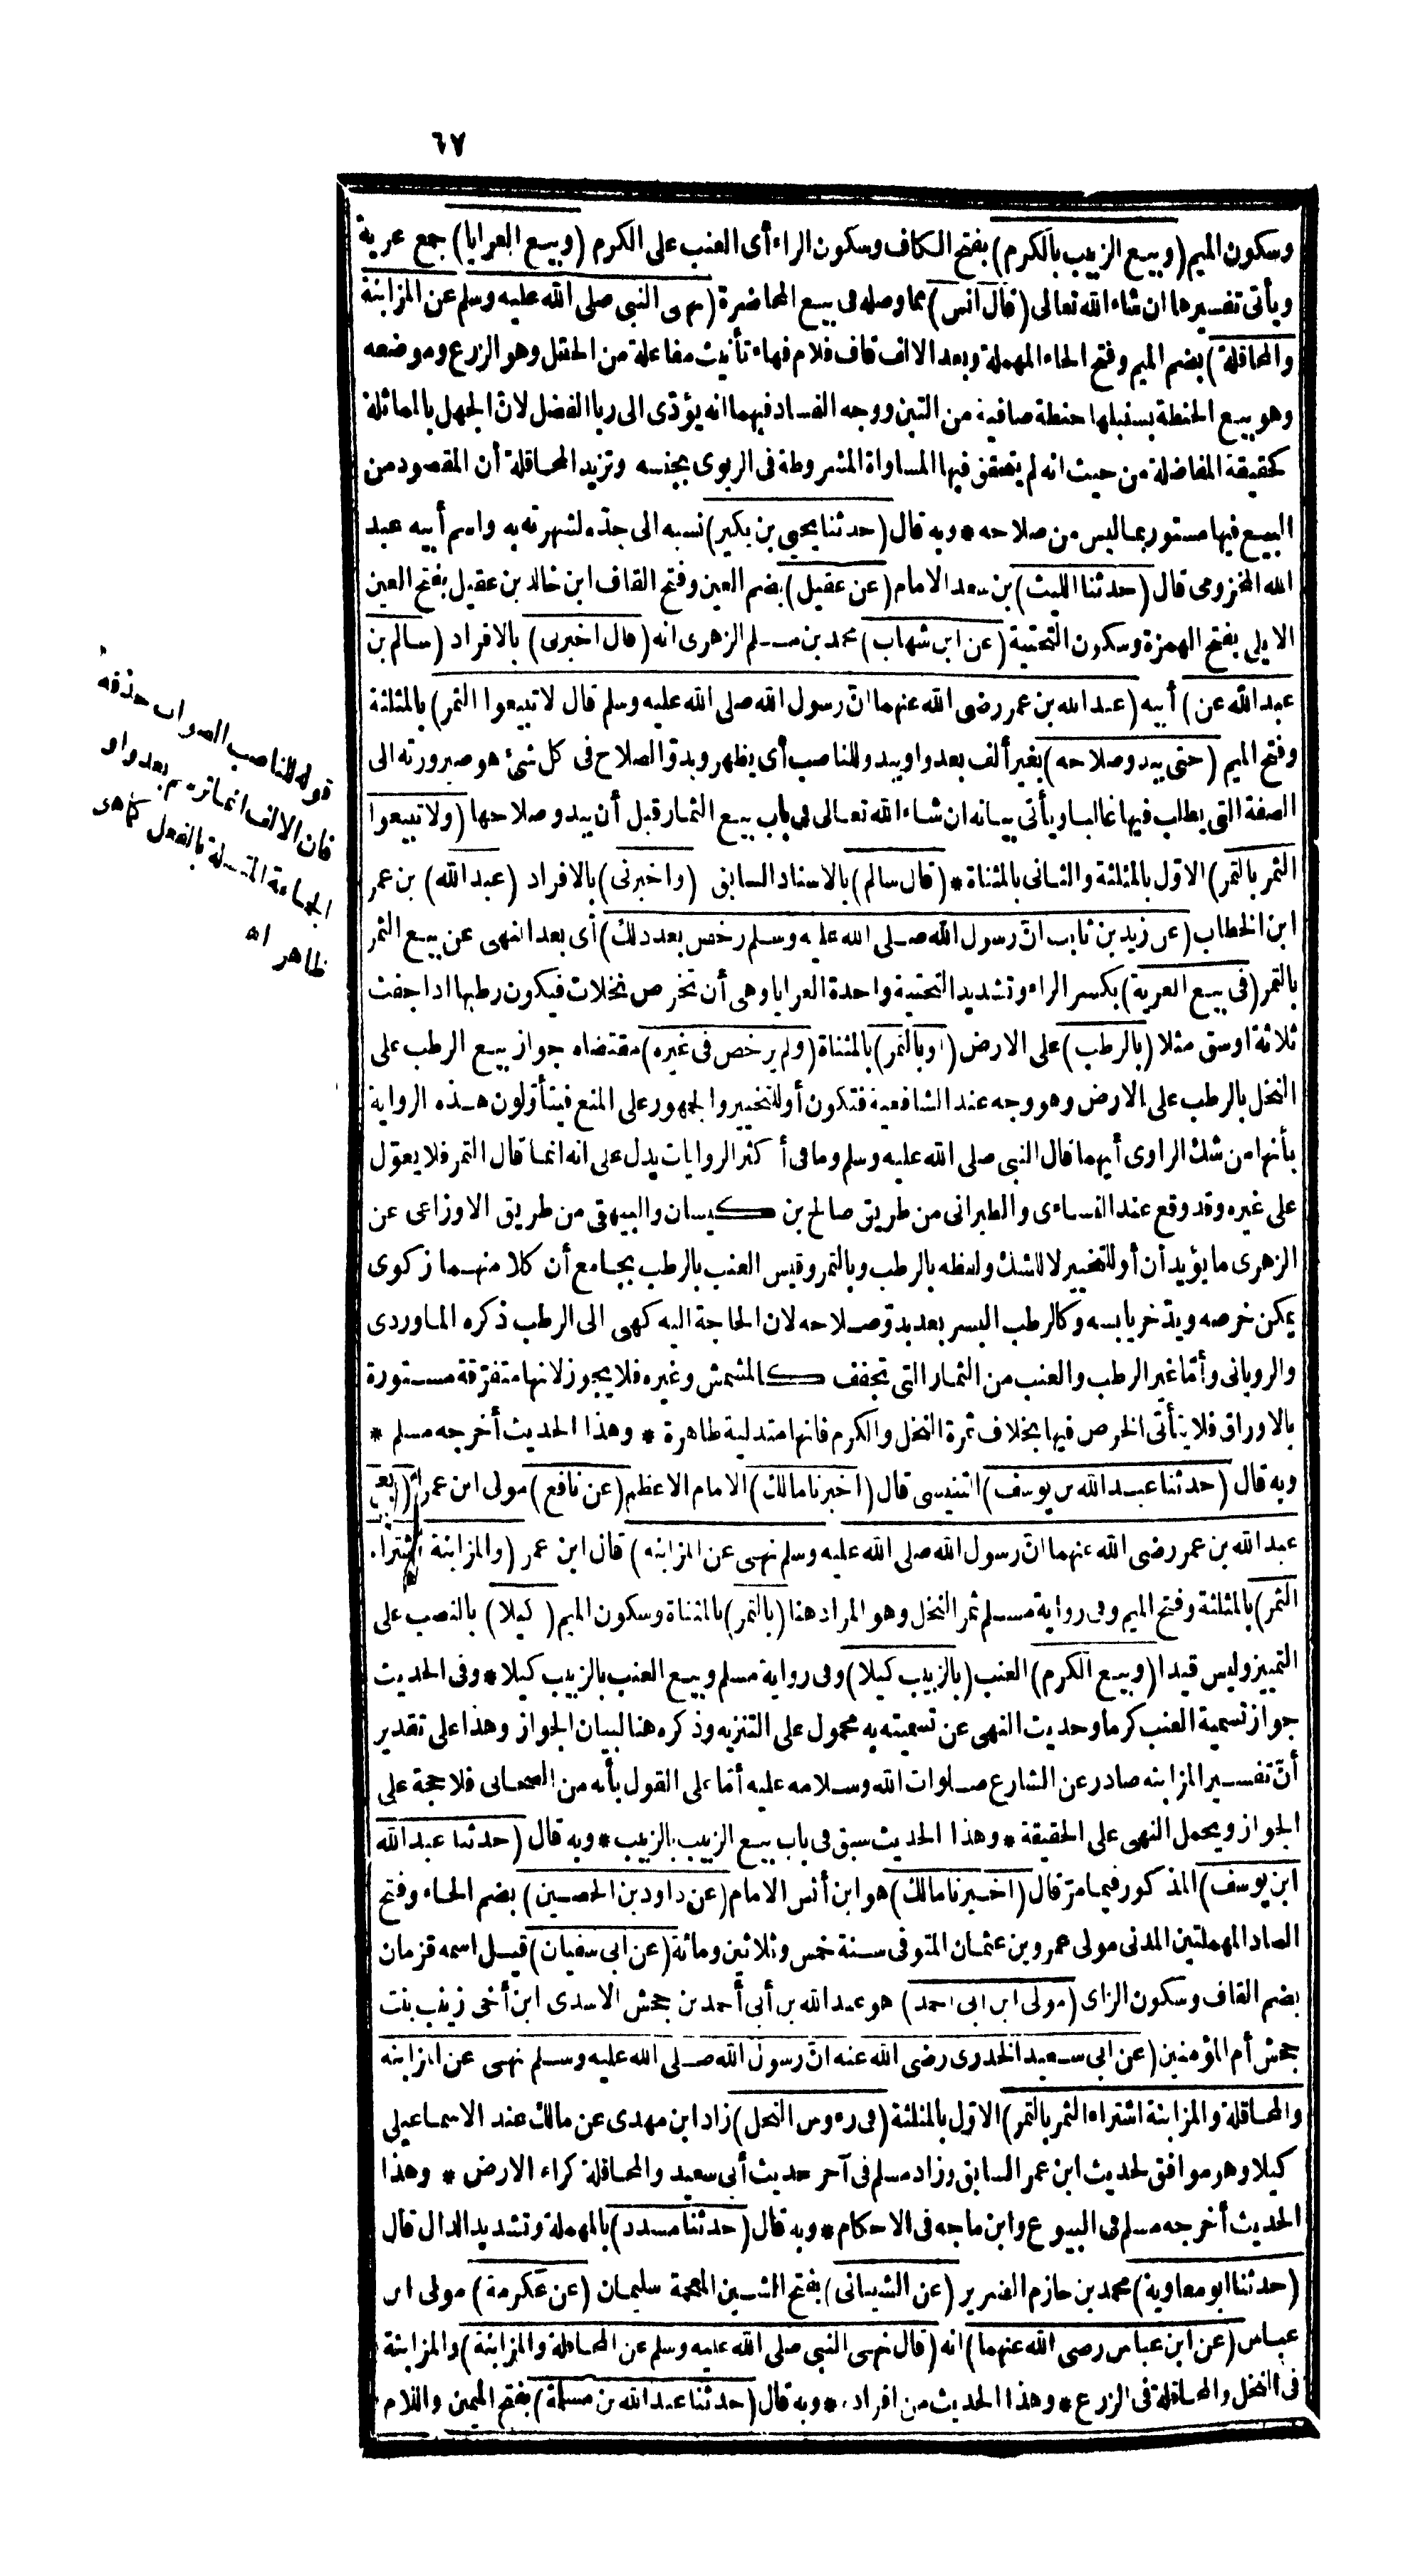 ٦٧
وسكون الميم (وبيع الزبيب بالكرم) بفتح الكاف وسكون الراء أى العنب على الكرم (وبيع العرايا) جمع عرية
ويأتى تفسيرها ان شاء الله تعالى (قال انس) مما وصله فى بيع المحاضرة (نهى النبى صلى الله عليه وسلم عن المزابنة
والمحاقلة) بضم الميم وفتح الحاء المهملة وبعد الالف قاف فلام فهاء تأنيث مفاعلة من الحقل وهو الزرع وموضعه
وهو بيع الحنطة بسنبلها حنطة صافية من التبن ووجه الفساد فيهما انه يؤدّى الى ربا الفضل لانّ الجهل بالمماثلة
كحقيقة المفاضلة من حيث انه لم يتحقق فيها المساواة المشروطة فى الربوى بجنسه وتزيد المحاقلة أن المقصود من
البيع فيها مستور بماليس من صلاحه * وبه قال (حدثنا يحيى بن بكير) نسبه الى جدّه لشهرته به واسم أبيه عبد
الله المخزومى قال (حدثنا الليث) بن سعد الامام (عن عقيل) بضم العين وفتح القاف ابن خالد بن عقيل بفتح العين
الايلى بفتح الهمزة وسكون التحتية (عن ابن شهاب) محمد بن مسلم الزهرى انه (قال اخبرنى) بالافراد (سالم بن
عبد الله عن) أبيه (عبد الله بن عمر رضى الله عنهما انّ رسول الله صلى الله عليه وسلم قال لا تبيعوا الثمر) بالمثلثة
وفتح الميم (حتى يبدو صلاحه) بغير ألف بعد واو يبدو للناصب أى يظهر وبدوّ الصلاح فى كل شئ هو صيرورته الى
الصفة التى يطلب فيها غالبا ويأتى بيانه ان شاء الله تعالى فى باب بيع الثمار قبل أن يبدو صلاحها (ولا تبيعوا
الثمر بالتمر) الاوّل بالمثلثة والثانى بالمثناة * (قال سالم) بالاسناد السابق (واخبرنى) بالافراد (عبد الله) بن عمر
ابن الخطاب (عن زيد بن ثابت انّ رسول الله صلى الله عليه وسلم رخص بعد ذلك) أى بعد النهى عن بيع الثمر
بالتمر (فى بيع العرية) بكسر الراء وتشديد التحتية واحدة العرايا وهى أن تخرص نخلات فيكون رطبها اذا جفت
ثلاثة اوسق مثلا (بالرطب) على الارض (او بالتمر) بالمثناة (ولم يرخص فى غيره) مقتضاه جواز بيع الرطب على
النخل بالرطب على الارض وهو وجه عند الشافعية فتكون أو للتخيير والجمهور على المنع فيتأوّلون هذه الرواية
بأنها من شك الراوى أيهما قال النبى صلى الله عليه وسلم وما فى أكثر الروايات يدل على انه انما قال التمر فلا يعوّل
على غيره وقد وقع عند النساءى والطبرانى من طريق صالح بن كيسان والبيهقى من طريق الاوزاعى عن
الزهرى ما يؤيد أن أو للتخيير لا للشك ولفظه بالرطب وبالتمر وقيس العنب بالرطب بجامع أن كلا منهما زكوى
يمكن خرصه ويدّخر يابسه وكالرطب البسر بعد بدوّ صلاحه لان الحاجة اليه كهى الى الرطب ذكره الماوردى
والرويانى وأمّا غير الرطب والعنب من الثمار التى تجفف كالمشمش وغيره فلا يجوز لانها متفرّقة مستورة
بالاوراق فلا يتأتّى الخرص فيها بخلاف ثمرة النخل والكرم فانها متدلية ظاهرة * وهذا الحديث أخرجه مسلم *
وبه قال (حدثنا عبد الله بن يوسف) التنيسى قال (اخبرنا مالك) الامام الاعظم (عن نافع) مولى ابن عمر (عن
عبد الله بن عمر رضى الله عنهما انّ رسول الله صلى الله عليه وسلم نهى عن المزابنة) قال ابن عمر (والمزابنة اشتراء
الثمر) بالمثلثة وفتح الميم وفى رواية مسلم ثمر النخل وهو المراد هنا (بالتمر) بالمثناة وسكون الميم (كيلا) بالنصب على
التمييز وليس قيدا (وبيع الكرم) العنب (بالزبيب كيلا) وفى رواية مسلم وبيع العنب بالزبيب كيلا * وفى الحديث
جواز تسمية العنب كرما وحديث النهى عن تسميته به محمول على التنزيه وذكره هنا لبيان الجواز وهذا على تقدير
أنّ تفسير المزابنة صادر عن الشارع صلوات الله وسلامه عليه أمّا على القول بأنه من الصحابى فلا حجة على
الجواز ويحمل النهى على الحقيقة * وهذا الحديث سبق فى باب بيع الزبيب بالزبيب * وبه قال (حدثنا عبد الله
ابن يوسف) المذكور فيما مرّ قال (اخبرنا مالك) هو ابن أنس الامام (عن داود بن الحصين) بضم الحاء وفتح
الصاد المهملتين المدنى مولى عمرو بن عثمان المتوفى سنة خمس وثلاثين ومائة (عن ابى سفيان) قيل اسمه قزمان
بضم القاف وسكون الزاى (مولى ابن ابى احمد) هو عبد الله بن أبى أحمد بن جحش الاسدى ابن أخى زينب بنت
جحش أم المؤمنين (عن ابى سعيد الخدرى رضى الله عنه انّ رسول الله صلى الله عليه وسلم نهى عن المزابنة
والمحاقلة والمزابنة اشتراء الثمر بالتمر) الاوّل بالمثلثة (فى رءوس النخل) زاد ابن مهدى عن مالك عند الاسماعيلى
كيلا وهو موافق لحديث ابن عمر السابق وزاد مسلم فى آخر حديث أبى سعيد والمحاقلة كراء الارض * وهذا
الحديث أخرجه مسلم فى البيوع وابن ماجه فى الاحكام * وبه قال (حدثنا مسدد) بالمهملة وتشديد الدال قال
(حدثنا ابو معاوية) محمد بن حازم الضرير (عن الشيبانى) بفتح الشين المعجمة سليمان (عن عكرمة) مولى ابن
عباس (عن ابن عباس رضى الله عنهما) انه (قال نهى النبى صلى الله عليه وسلم عن المحاقلة والمزابنة) والمزابنة
فى النخل والمحاقلة فى الزرع * وهذا الحديث من افراده * وبه قال (حدثنا عبد الله بن مسلمة) بفتح الميمين واللام
قوله للناصب الصواب حذفه
فان الالف انما ترسم بعد واو
الجماعة المتصلة بالفعل كما هو
ظاهر اه